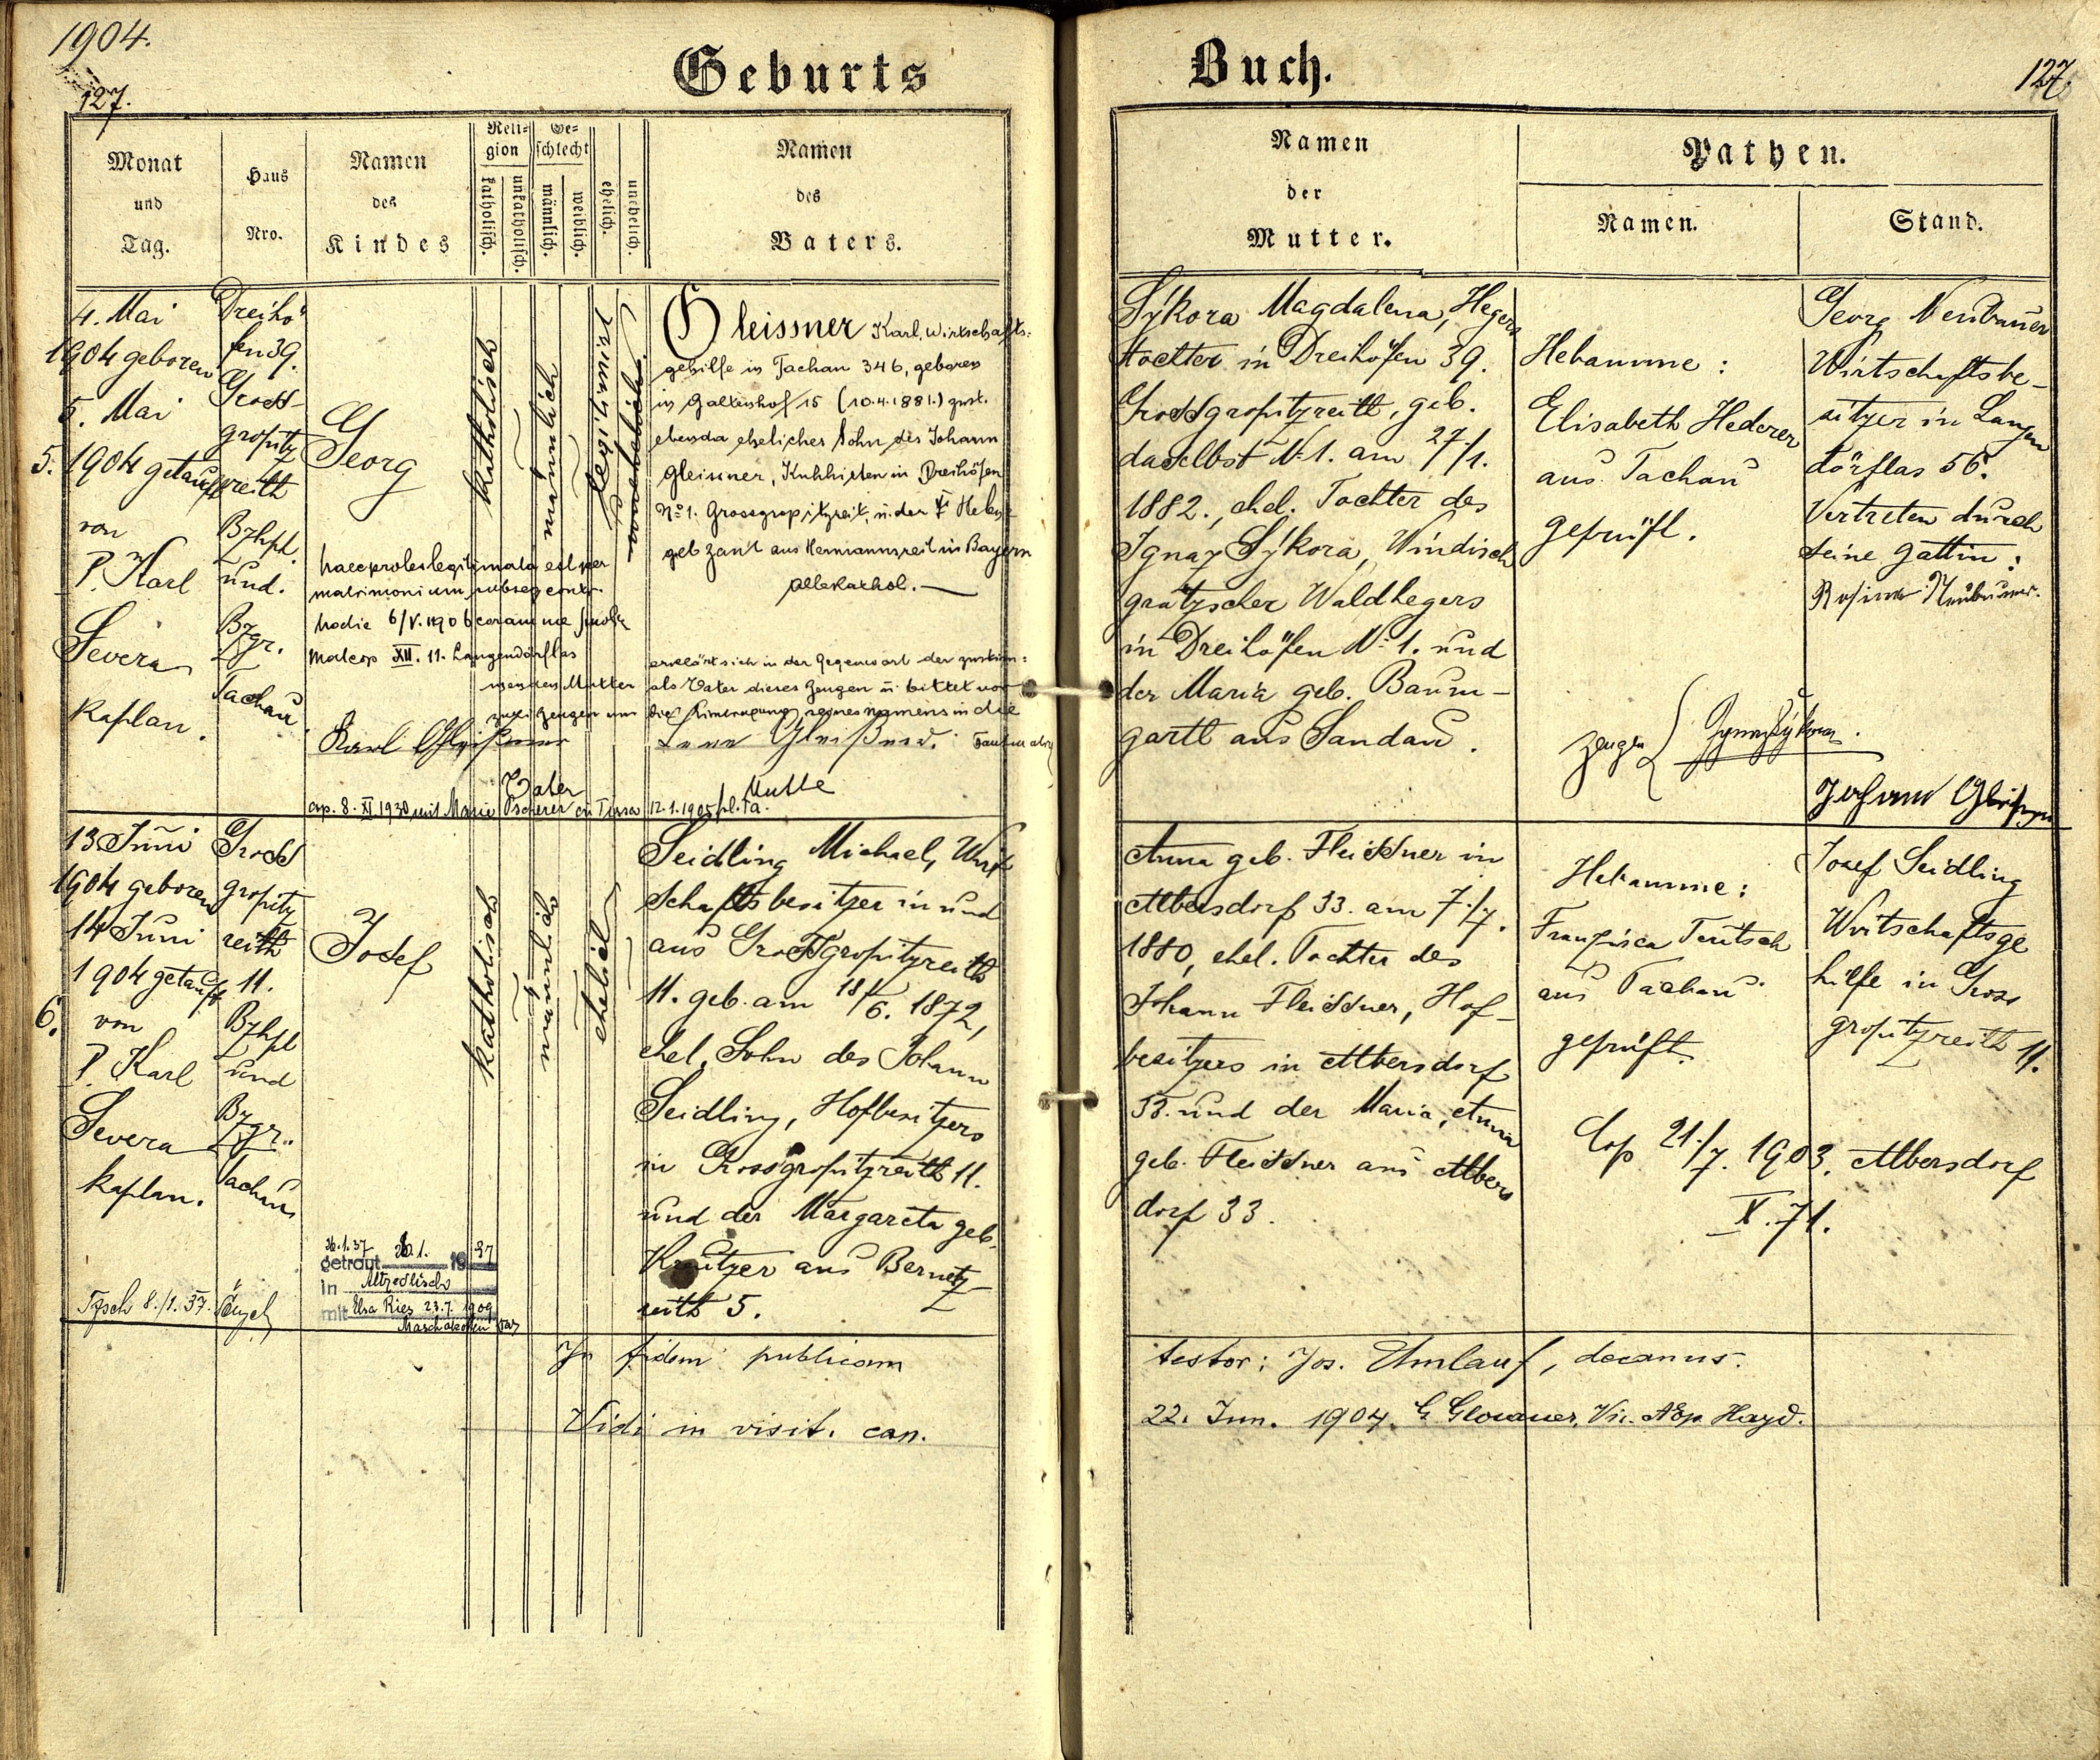 1904.
127.
Geburts
Monat
und
Tag.
Haus
Nro.
Namen
des
Kindes
Reli=
gion
katholisch.
unkatholisch.
Ge=
schlecht
männlich.
weiblich.
ehelich.
unehelich.
Namen
des
Vaters.
5.
4. Mai
1904 geboren
5. Mai
1904 getauft
von
P. Karl
Severa
Kaplan.
Dreihö
fen 39.
Gross-
gropitz
reith
Bzhpt.
und.
Bzgr.
Tachau
Georg
haec proles legitimata est per
matrimonium subseq contr.
hodie 6/V. 1906 coram me
matcop XII. 11. Langendörflas
Karl Gleißner
Vater
cop. 8. XI 1930 mit Marie
katholisch
männlich
unehelich
Gleissner Karl, Wirtschafts:
gehilfe in Tachau 346, geboren
in Galtenhof 15 (10.4.1881.) zust.
ebenda ehelicher Sohn des Johann
Gleissner, Kuhhirten in Dreihöfen
No 1. Grossgropitzreit, u. der
geb Zant aus Hermannsreit in Bayern
alle kathol.
erklärt sich in der Gegenwart der zustim:
menden Mutter als Vater dieses Zeugen u bittet vor
zwei Zeugen um die Eintragung seines Namens in die
Gleißner.
Mutter
12.1.1905
6.
13 Juni
1904 geboren
14 Juni
1904 getauft
von
P. Karl
Severa
Kaplan.
Gross
gropitz
reith
11.
Bzhpt
und
Bzgr.
Tachau
Josef
26.1.37
getraut 26.1. 1937
in Altzedlisch
mit Elsa Ries 23.7.1909
8./1.37.
katholisch
männlich
ehelich
Seidling Michael, Wirt
schaftsbesitzer in und
aus Grossgropitzreith
11. geb. am 18/6. 1872,
ehel. Sohn des Johann
Seidling, Hofbesitzers
in Grossgropitzreith 11.
und der Margareta geb.
Kreutzer aus Bernetz-
reith 5.
In fidem publicam
Vidi in visit. can.
Buch.
127.
Namen
der
Mutter.
Pathen.
Namen.
Stand.
Sýkora Magdalena, Hegers
tochter in Dreihöfen 39.
Grossgropitzreith, geb.
daselbst N. 1. am 27/1.
1882., ehel. Tochter des
Ignaz Sýkora, Windisch
grätzscher Waldhegers
in Dreihöfen N. 1. und
der Maria geb. Baum-
gartl aus Sandau.
Hebamme:
Elisabeth Hederer
aus Tachau
geprüft.
Zeugen
Ignaz Sýkora.
Johann Gleißner
Georg Neubauer
Wirtschaftsbe-
sitzer in Langen
dörflas 56.
Vertreten durch
seine Gattin:
Rosina Neubauer.
Anna geb. Fleissner in
Albersdorf 33. am 7./7.
1880, ehel. Tochter des
Johann Fleissner, Hof-
besitzers in Albersdorf
33. und der Maria, Anna
geb. Fleissner aus Albers
dorf 33.
Hebamme:
Franzisca Teutsch
aus Tachau
geprüft.
Josef Seidling
Wirtschaftsge
hilfe in Gross
gropitzreith 11.
Cop 21./7. 1903. Albersdorf
X. 71.
testor: Jos. Umlauf, decanus.
22. Jun. 1904.